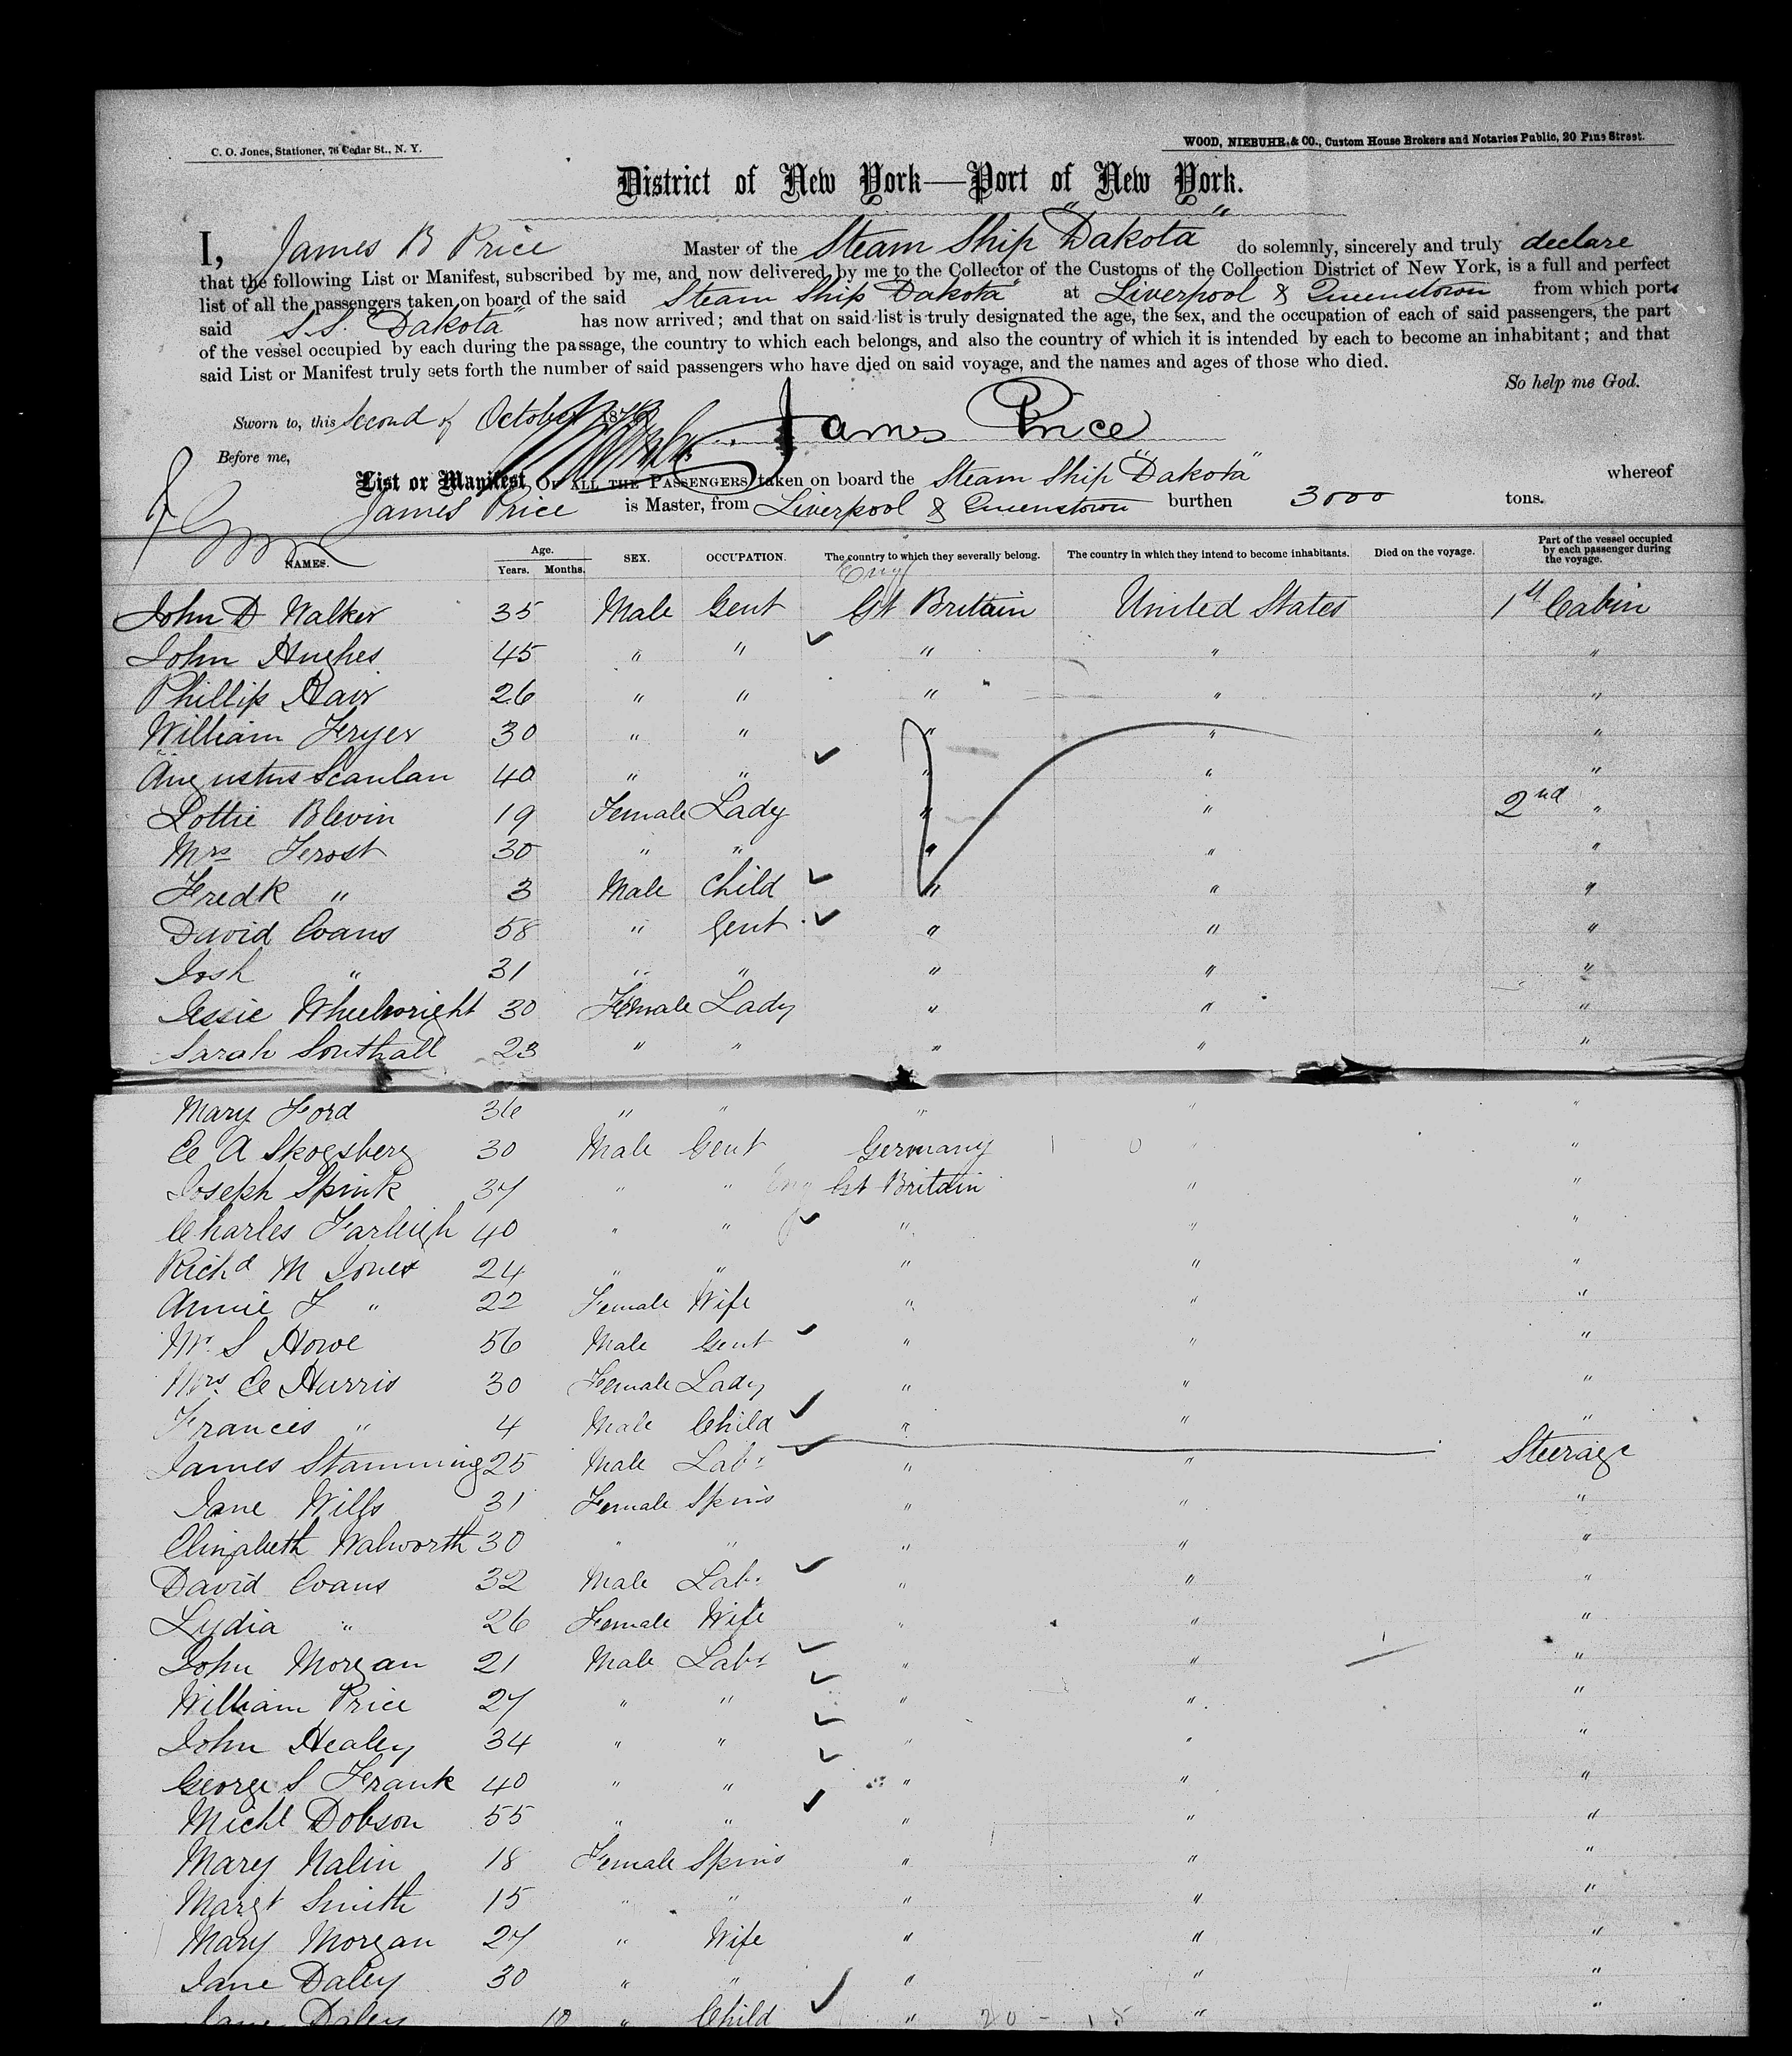 C. O. Jones, Stationer, 76 Cedar St., N. Y.
WOOD, NIEBUHR & CO., Custom House Brokers and Notaries Public, 20 Pine Street.
District of New York—Port of New York.
I, James B Price Master of the Steam Ship "Dakota" do solemnly, sincerely and truly declare
that the following List or Manifest, subscribed by me, and now delivered by me to the Collector of the Customs of the Collection District of New York, is a full and perfect
list of all the passengers taken on board of the said Steam Ship Dakota" at Liverpool & Queenstown from which ports
said S.S. "Dakota" has now arrived; and that on said list is truly designated the age, the sex, and the occupation of each of said passengers, the part
of the vessel occupied by each during the passage, the country to which each belongs, and also the country of which it is intended by each to become an inhabitant; and that
said List or Manifest truly sets forth the number of said passengers who have died on said voyage, and the names and ages of those who died.
So help me God.
Sworn to, this Second of October 187 James Price
Before me,
List or Manifest OF ALL THE PASSENGERS taken on board the Steam Ship "Dakota" whereof
James Price is Master, from Liverpool & Queenstown burthen 3000 tons.
NAMES. Age. Years. Months. SEX. OCCUPATION. The country to which they severally belong. The country in which they intend to become inhabitants. Died on the voyage. Part of the vessel occupied by each passenger during the voyage.
Eng
John D Walker 35 Male Gent Gt Britain United States 1st Cabin
John Hughes 45 " " " " "
Phillip Hair 26 " " " " "
William Fryer 30 " " " " "
Augustus Scanlan 40 " " " " "
Lottie Blevin 19 Female Lady " " 2nd "
Mrs Frost 30 " " " " "
Fredk " 3 Male Child " " "
David Evans 58 " Gent " " "
Josh " 31 " " " " "
Jessie Wheelwright 30 Female Lady " " "
Sarah Southall 23 " " " " "
Mary Ford 36 " " " " "
C A Skogsberg 30 Male Gent Germany " "
Joseph Spink 37 " " Eng Gt Britain " "
Charles Farleigh 40 " " " " "
Richd M Jones 24 " " " " "
Annie F " 22 Female Wife " " "
Mr. S Howe 56 Male Gent " " "
Mrs. C Harris 30 Female Lady " " "
Francis " 4 Male Child " " "
James Stamming 25 Male Labr " " Steerage
Jane Wills 31 Female Spins " " "
Elizabeth Walworth 30 " " " " "
David Evans 32 Male Labr " " "
Lydia " 26 Female Wife " " "
John Morgan 21 Male Labr " " "
William Price 27 " " " " "
John Healey 34 " " " " "
George S Frank 40 " " " " "
Michl Dobson 55 " " " " "
Mary Nalin 18 Female Spins " " "
Margt Smith 15 " " " " "
Mary Morgan 27 " Wife " " "
Jane Daley 30 " " " " "
Jane Daley 10 " Child " " "